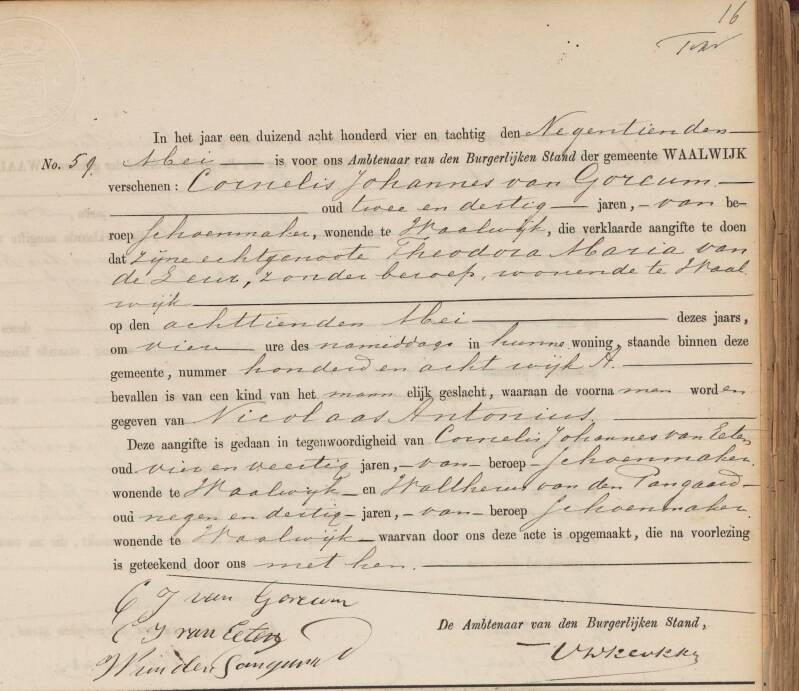 16
In het jaar een duizend acht honderd vier en tachtig den Negentienden
No. 59. Mei is voor ons Ambtenaar van den Burgerlijken Stand der gemeente WAALWIJK
verschenen: Cornelis Johannes van Gorcum
oud twee en dertig jaren, van be-
roep schoenmaker, wonende te Waalwijk, die verklaarde aangifte te doen
dat zijne echtgenoote Theodora Maria van
de Leur, zonder beroep, wonende te Waal
wijk
op den achttienden Mei dezes jaars,
om vier ure des namiddags in hunne woning, staande binnen deze
gemeente, nummer honderd en acht wijk A.
bevallen is van een kind van het mann elijk geslacht, waaraan de voorna men word en
gegeven van Nicolaas Antonius,
Deze aangifte is gedaan in tegenwoordigheid van Cornelis Johannes van Eeten
oud vier en veertig jaren, van beroep schoenmaker,
wonende te Waalwijk en Waltherus van den Pangaard
oud negen en dertig jaren, van beroep schoenmaker,
wonende te Waalwijk waarvan door ons deze acte is opgemaakt, die na voorlezing
is geteekend door ons met hen.
C J van Gorcum
C J van Eeten
De Ambtenaar van den Burgerlijken Stand,